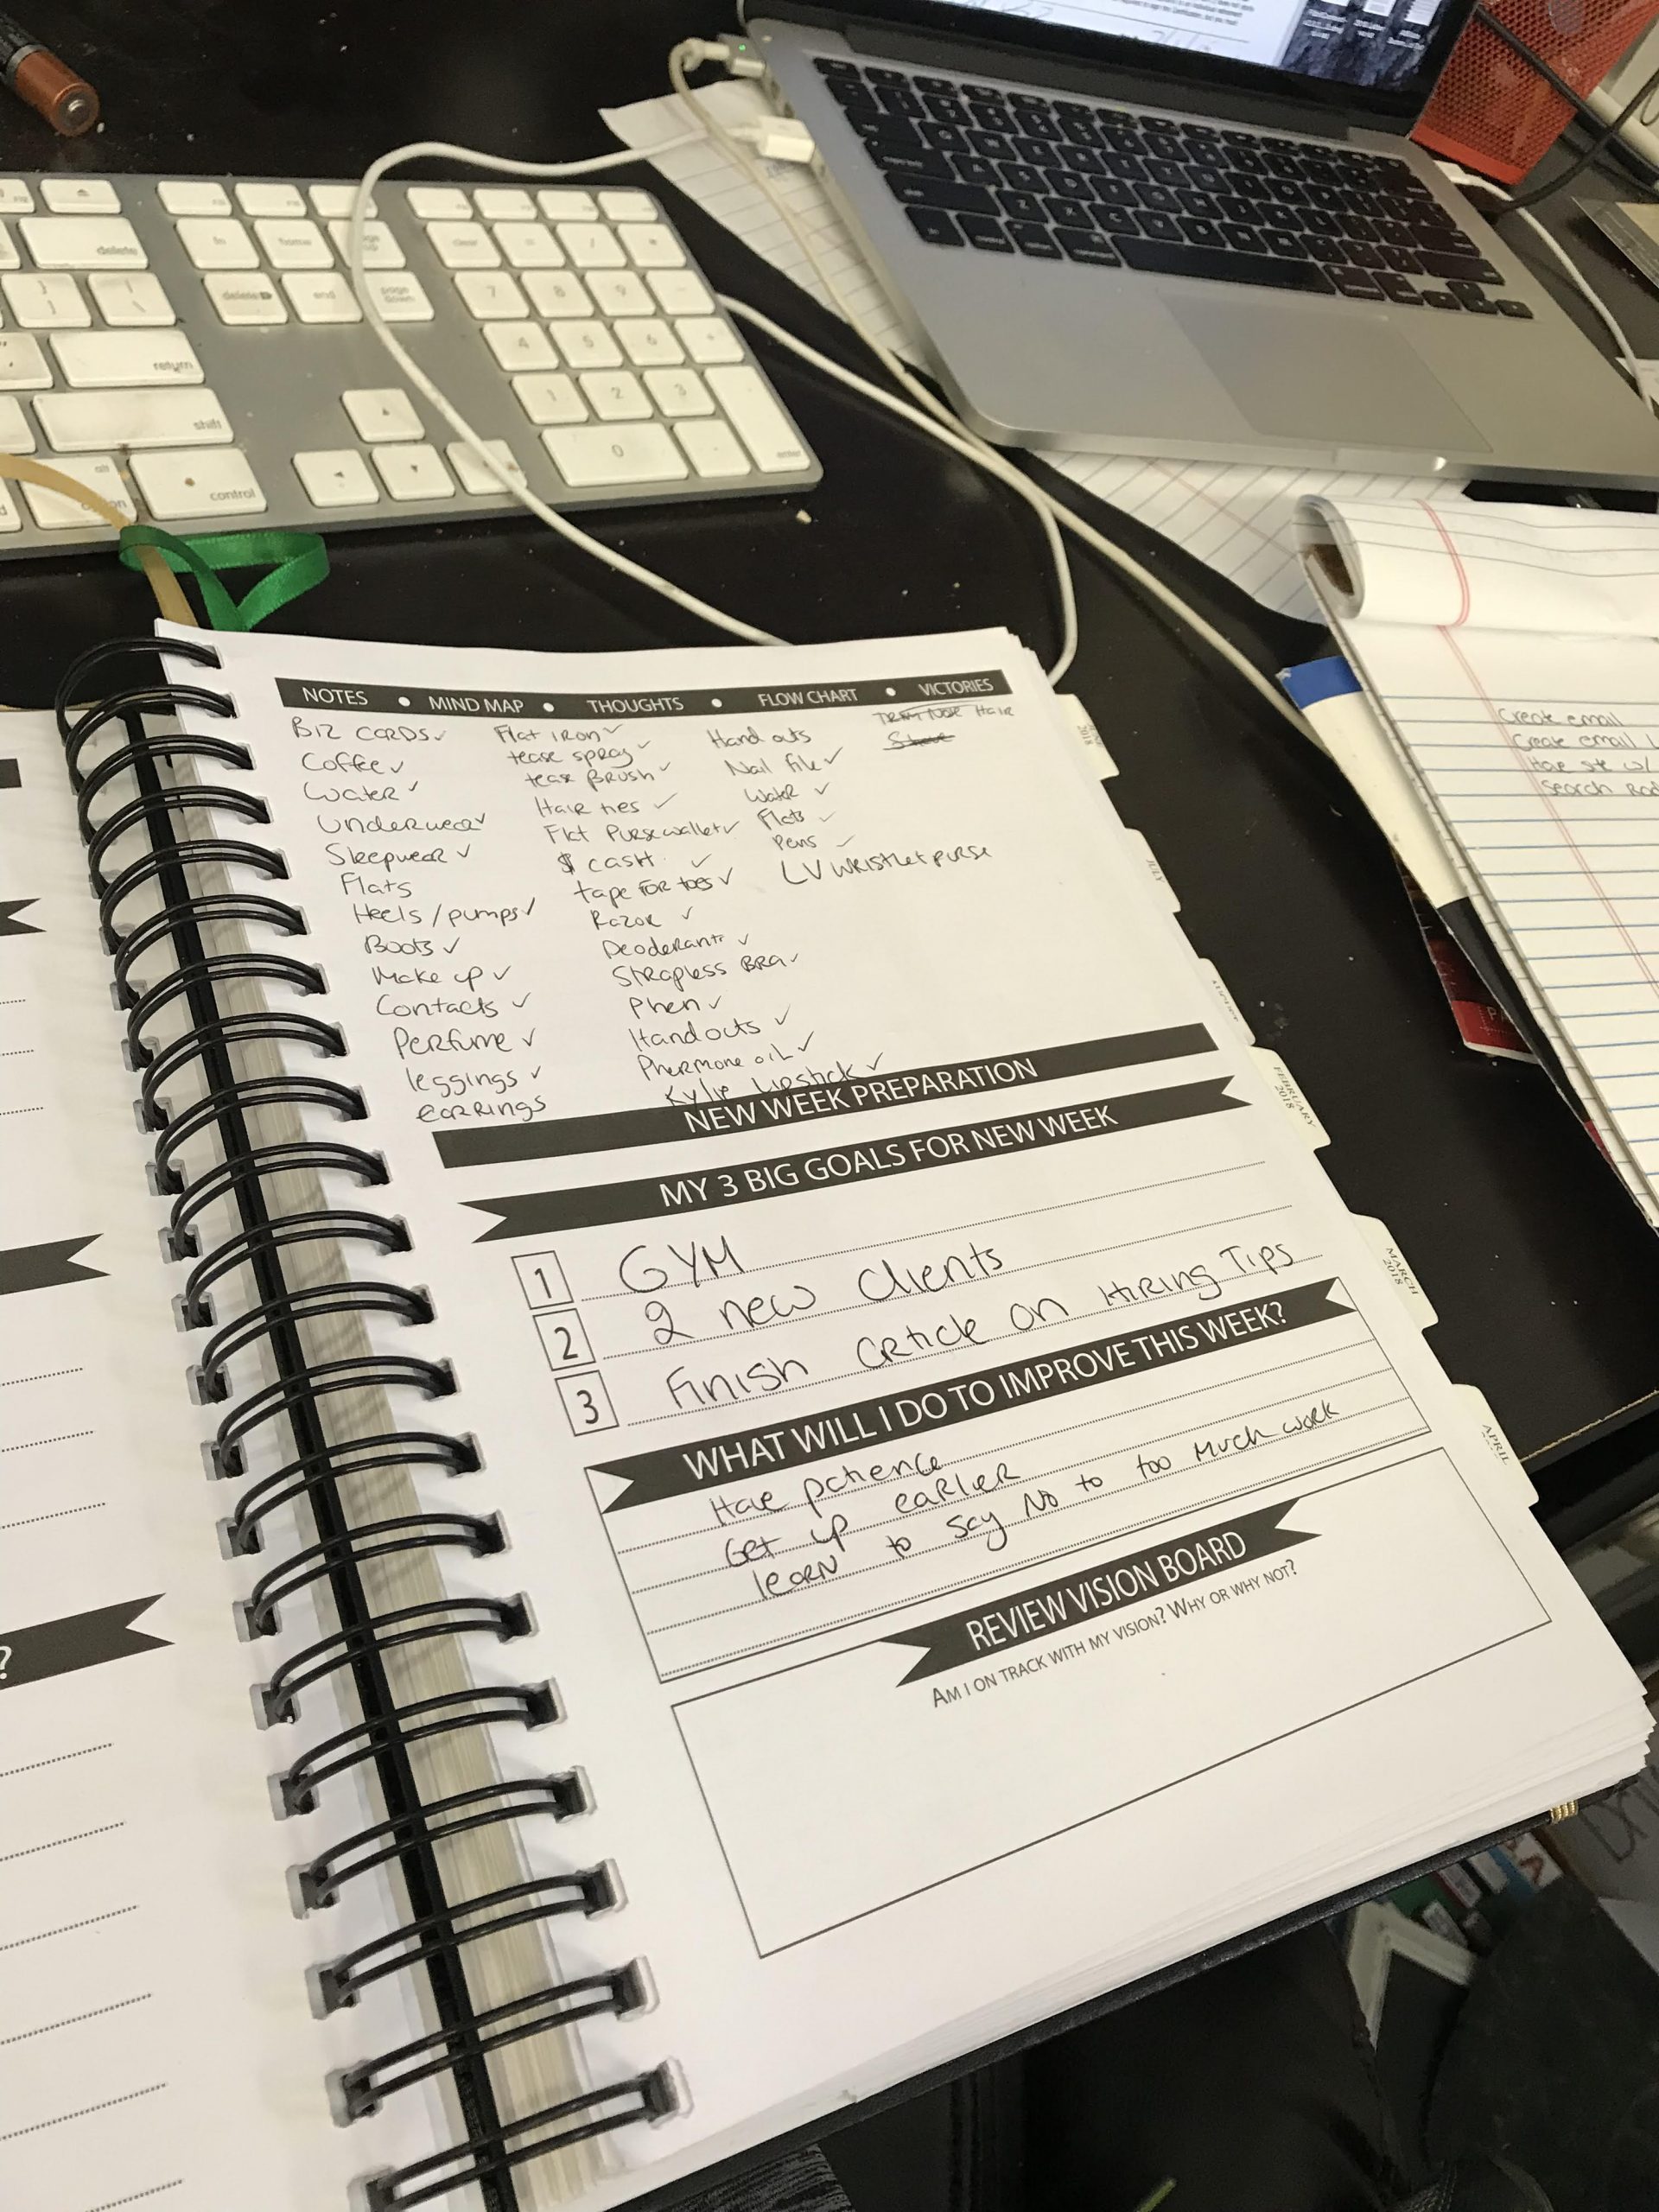 delete
home
delete
end
page down
clear
=
/
*
7
8
9
-
4
5
6
+
return
1
2
3
shift
0
.
enter
alt
option
control
NOTES • MIND MAP • THOUGHTS • FLOW CHART • VICTORIES
Biz cards ✓
Coffee ✓
Water ✓
Underwear ✓
Sleepwear ✓
Flats
Heels/pumps ✓
Boots ✓
Make up ✓
Contacts ✓
Perfume ✓
leggings ✓
earrings
Flat iron ✓
tease spray ✓
tease Brush ✓
Hair ties ✓
Flat Purse wallet ✓
$ cash ✓
tape for toes ✓
Razor ✓
Deoderant ✓
Strapless Bra ✓
Phen ✓
Handouts ✓
Phermone oil ✓
Kylie Lipstick ✓
Hand outs
Nail file ✓
Water ✓
Flats ✓
Pens ✓
LV wristlet purse
Hair
NEW WEEK PREPARATION
MY 3 BIG GOALS FOR NEW WEEK
1 GYM
2 2 new clients
3 Finish article on Hiring Tips
WHAT WILL I DO TO IMPROVE THIS WEEK?
Have patience
Get up earlier
learn to say No to too much work
REVIEW VISION BOARD
AM I ON TRACK WITH MY VISION? WHY OR WHY NOT?
JULY
FEBRUARY
2018
MARCH
2018
APRIL
Create email
Create email
Search
?